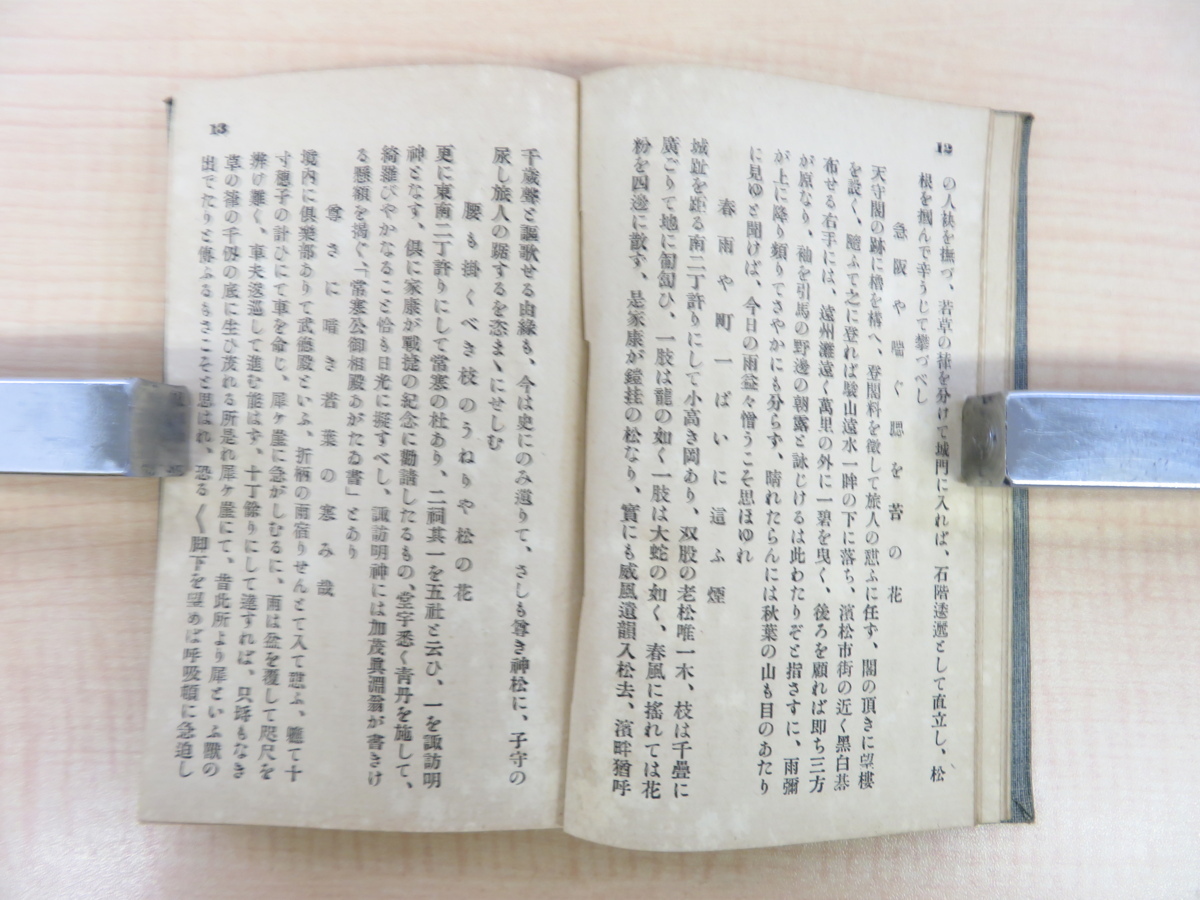 12
の人袂を撫づ、若草の緑を分けて城門に入れば、石階逶迤として直立し、松
根を摑んで辛うじて攀づべし
急阪や喘ぐ腮を苔の花
天守閣の跡に櫓を構へ、登閣料を徴して旅人の憩ふに任す、閣の頂きに望樓
を設く、隨ふて之に登れば駿山遠水一眸の下に落ち、濱松市街の近く黑白碁
布せる右手には、遠州灘遠く萬里の外に一碧を曳く、後ろを顧れば即ち三方
が原なり、袖を引馬の野邊の朝露と詠じけるは此わたりぞと指さすに、雨彌
が上に降り頻りてさやかにも分らず、晴れたらんには秋葉の山も目のあたり
に見ゆと聞けば、今日の雨益々憎うこそ思ほゆれ
春雨や町一ぱいに這ふ煙
城趾を距る南二丁許りにして小高き岡あり、双股の老松唯一木、枝は千疊に
廣ごりて地に匍匐ひ、一肢は龍の如く一肢は大蛇の如く、春風に搖れては花
粉を四邊に散ず、是家康が鎧挂の松なり、實にも威風遺韻入松去、濱畔猶呼
13
千歳聲と謳歌せる由緣も、今は史にのみ遺りて、さしも尊き神松に、子守の
尿し旅人の踞するを恣まゝにせしむ
腰も掛くべき枝のうねりや松の花
更に東南二丁許りにして常寒の杜あり、二祠其一を五社と云ひ、一を諏訪明
神となす、倶に家康が戰捷の紀念に勸請したるもの、堂宇悉く靑丹を施して、
綺羅びやかなること恰も日光に擬すべし、諏訪明神には加茂眞淵翁が書きけ
る懸額を揭ぐ、「常寒公御相殿あがたゐ書」とあり
尊さに暗き若葉の寒み哉
境内に倶樂部ありて武德殿といふ、折柄の雨宿りせんとて入て憩ふ、軈て十
寸穂子の計ひにて車を命じ、犀ケ崖に急がしむるに、雨は盆を覆して咫尺を
辨け難く、車夫逡巡して進む能はず、十丁餘りにして達すれば、只時もなき
草の雜の千仭の底に生ひ茂れる所是れ犀ケ崖にて、昔此所より犀といふ獸の
出でたりと傳ふるもさこそと思はれ、恐る〱脚下を望めば呼吸頓に急迫し